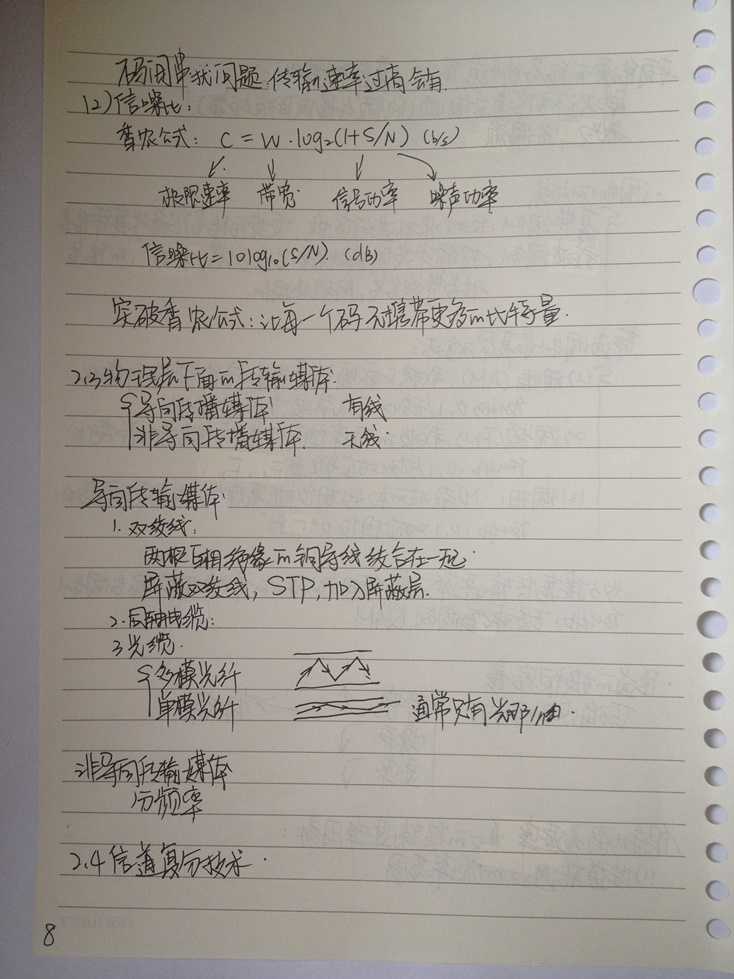 码间串扰问题 传输速率过高会有.
(2)信噪比:
香农公式: C = W·log₂(1+S/N) (b/s)
极限速率 带宽 信号功率 噪声功率
信噪比=10log₁₀(S/N). (dB)
突破香农公式:让每一个码元携带更多的比特量.
2.3物理层下面的传输媒体.
导向传播媒体 有线
非导向传播媒体. 无线.
导向传输媒体
1. 双绞线.
两根互相绝缘的铜导线绞合在一起.
屏蔽双绞线, STP, 加入屏蔽层.
2. 同轴电缆:
3 光缆.
多模光纤
单模光纤 通常只有光
非导向传输媒体
分频率
2.4 信道复分技术.
8